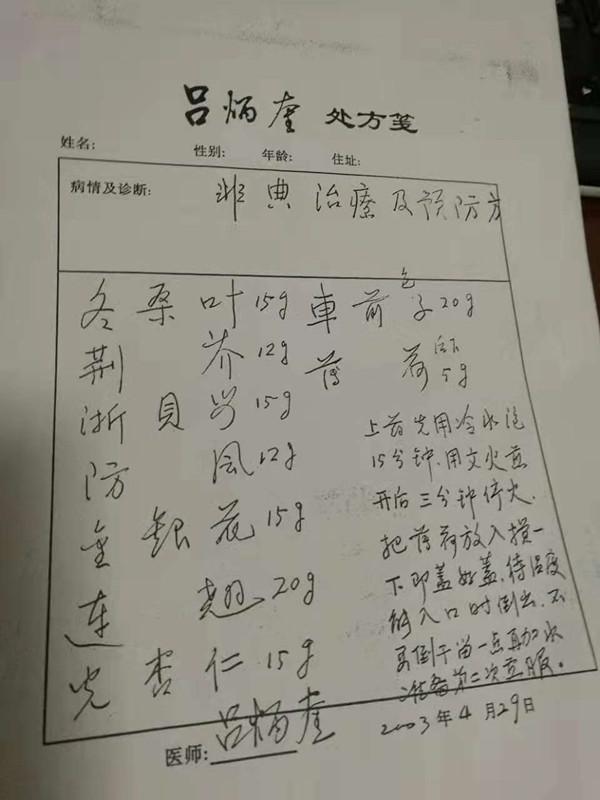 吕炳奎 处方笺
姓名: 性别: 年龄: 住址:
病情及诊断: 非典治療及预防方
冬桑叶15g 車前子包20g
荆芥12g 薄荷后下5g
浙貝母15g
防風12g
金銀花15g
連翘20g
光杏仁15g
上药先用冷水泡
15分钟.用文火煎
开后三分钟停火.
把薄荷放入搅一
下即盖好盖,待温度
能入口时倒出.不
要倒干留一点再加水
准备第二次煎服。
医师: 吕炳奎
2003年4月29日